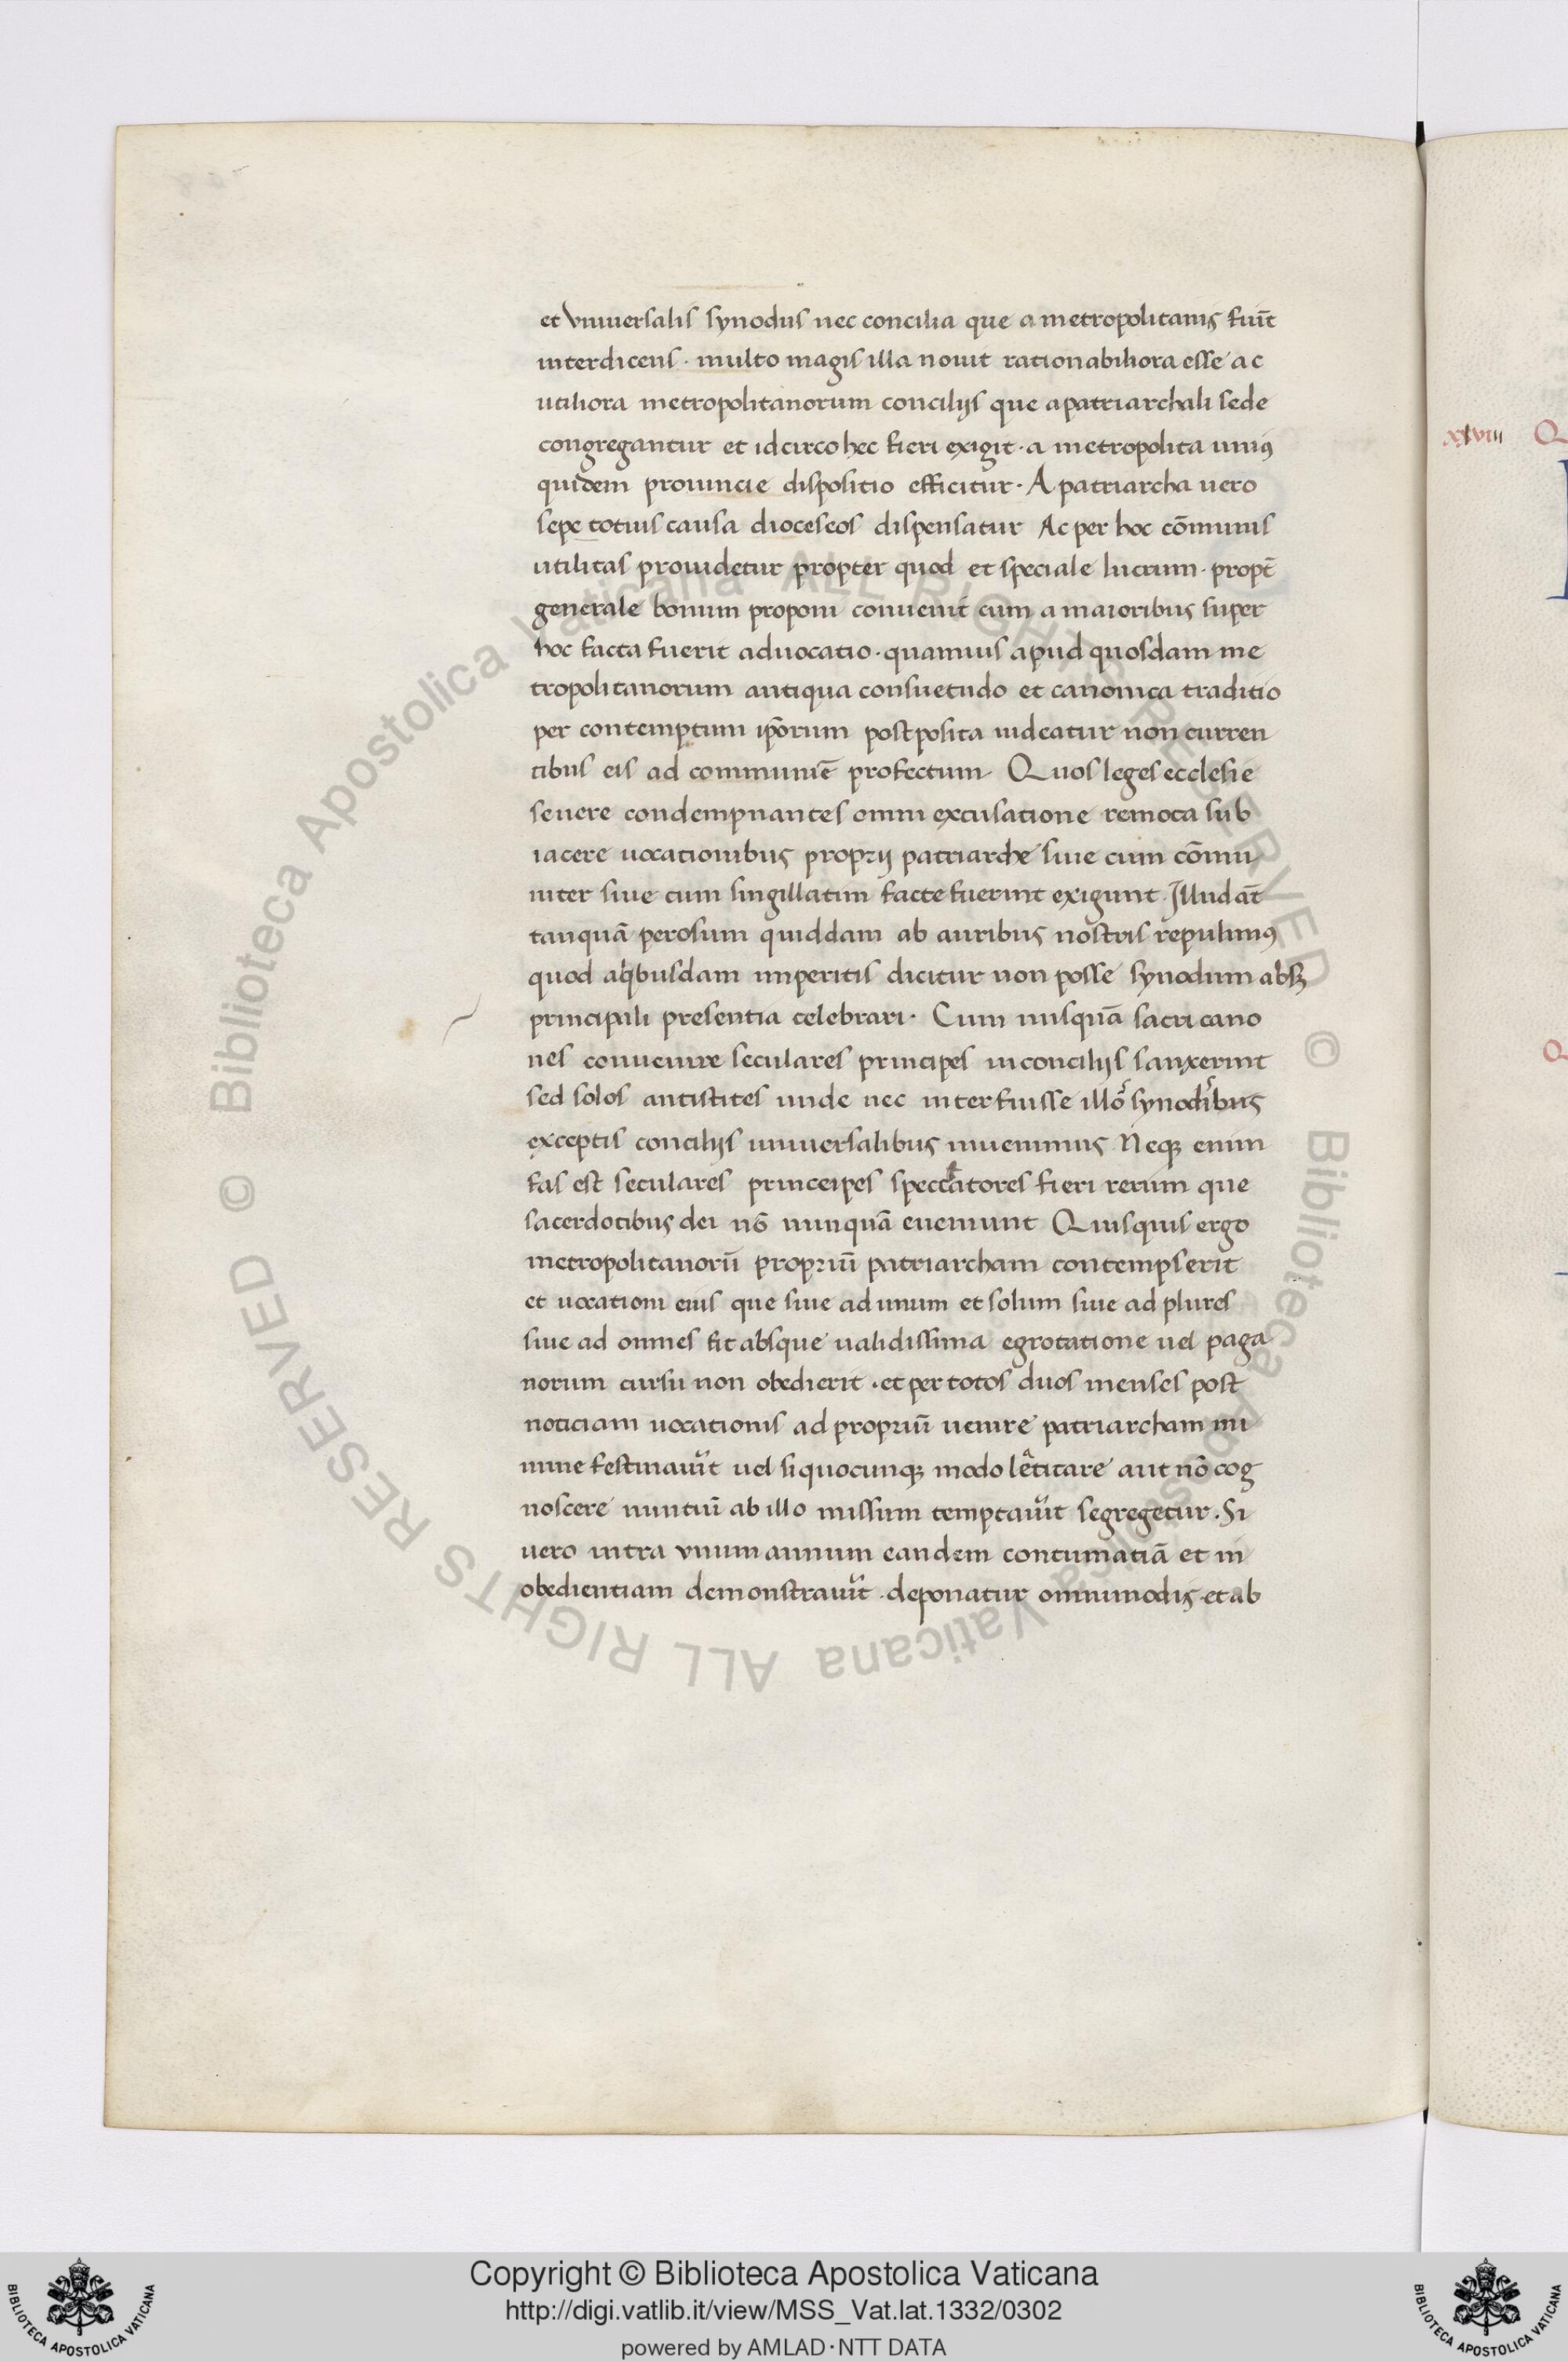 et vniuersalis synodus nec concilia que a metropolitanis fiūt
interdicens · multo magis illa nouit rationabiliora esse ac
utiliora metropolitanorum concilijs que apatriarchali sede
congregantur et idcirco hec fieri exigit · a metropolita uniꝰ
quidem prouincie dispositio efficitur · A patriarcha uero
sepe totius causa dioceseos dispensatur Ac per hoc cōmunis
utilitas prouidetur propter quod et speciale lucrum · propt̄
generale bonum proponi conuenit cum a maioribus super
hoc facta fuerit aduocatio · quamuis apud quosdam me
tropolitanorum antiqua consuetudo et canonica traditio
per contemptum ip̄orum postposita uideatur non curren
tibus eis ad communē profectum · Quos leges ecclesie
seuere condempnantes omni excusatione remota sub
iacere uocationibus proprij patriarche siue cum cōmu
niter siue cum singillatim facte fuerint exigunt · Illud at̄
tanquā perosum quiddam ab auribus nostris repulimꝰ
quod aqͥbusdam imperitis dicitur non posse synodum absqꝫ
principali presentia celebrari · Cum nusquā sacri cano
nes conuenire seculares principes inconcilijs sanxerint
sed solos antistites unde nec interfuisse illoᷣ synodibus
exceptis concilijs uniuersalibus inuenimus Neqꝫ enim
fas est seculares princeipes spectatores fieri rerum que
sacerdotibus dei nō nunquā eueniunt Quisquis ergo
metropolitanorū propriū patriarcham contempserit
et uocationi eius que siue ad unum et solum siue ad plures
siue ad omnes fit absque ualidissima egrotatione uel paga
norum cursu non obedierit · et per totos duos menses post
noticiam uocationis ad propriū uenire patriarcham mi
nime festinauͥt uel siquocunqꝫ modo letitare aut nō cog
noscere nuntiū ab illo missum temptauͥt segregetur · Si
uero intra vnum annum eandem contumatiā et in
obedientiam demonstrauͥt · deponatur omnimodis · et ab
xxviii Q
Q
© Biblioteca Apostolica Vaticana ALL RIGHTS RESERVED
© Biblioteca Apostolica Vaticana ALL RIGHTS RESERVED
Copyright © Biblioteca Apostolica Vaticana
http://digi.vatlib.it/view/MSS_Vat.lat.1332/0302
powered by AMLAD·NTT DATA
BIBLIOTECA APOSTOLICA VATICANA
BIBLIOTECA APOSTOLICA VATICANA